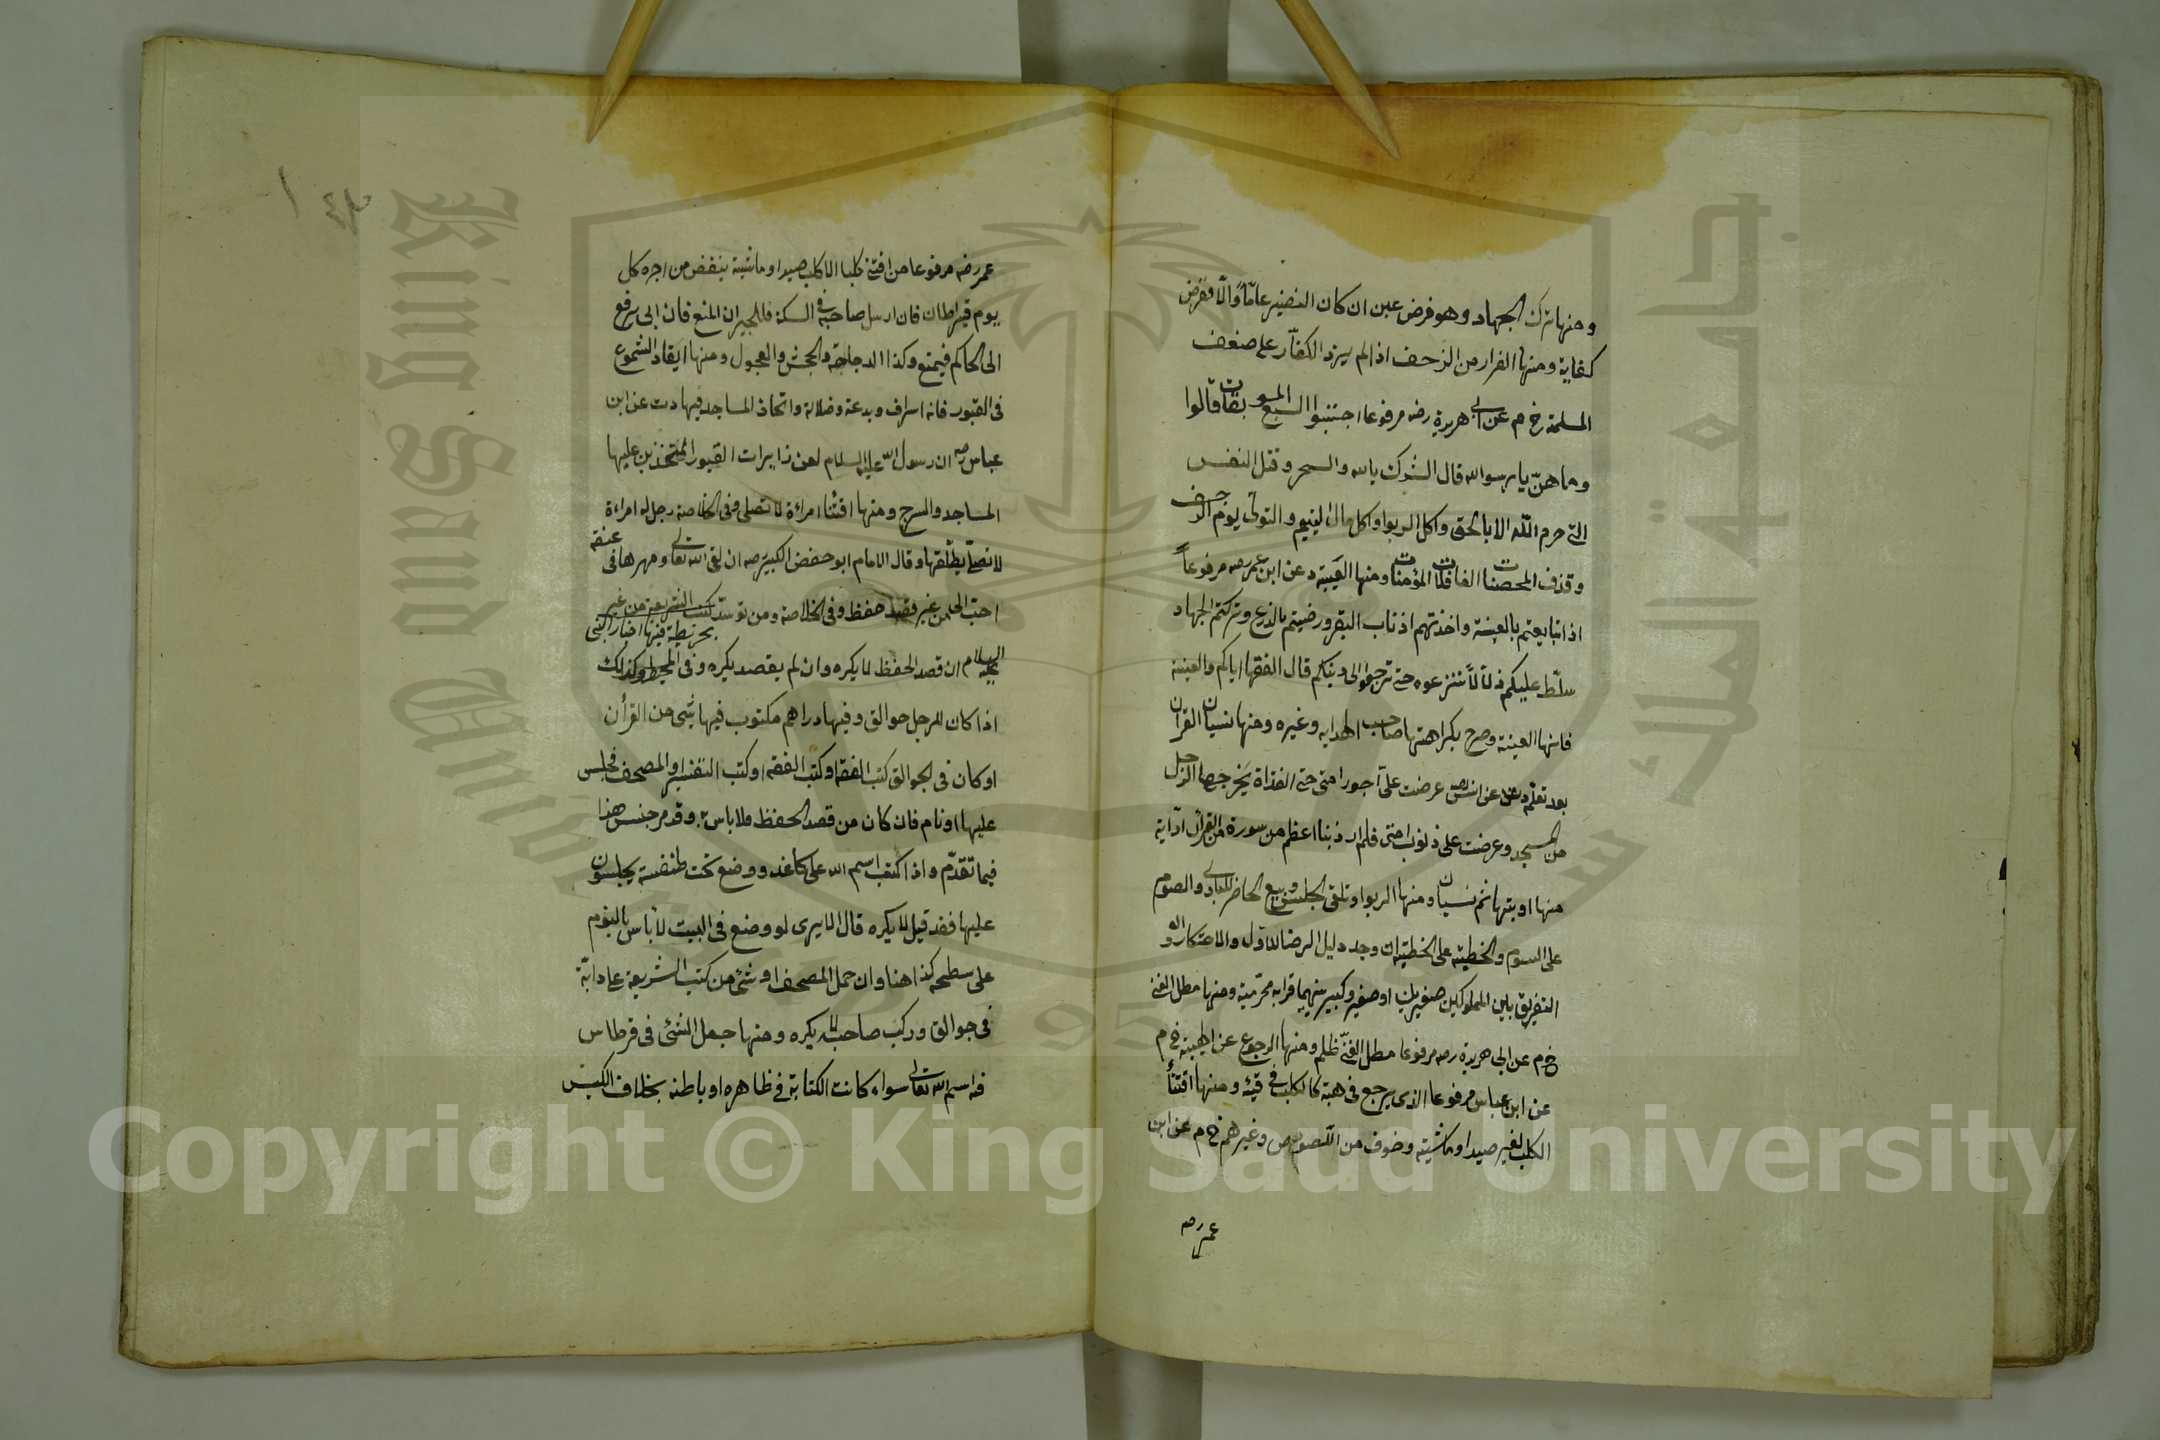 ومنها ترك الجهاد وهو فرض عين ان كان النفير عامّاً والّا ففرض
كفاية ومنها الفرار من الزحف اذا لم يزد الكفّار على ضعف
المسلمة خ م عن ابى هريرة رضه مرفوعا اجتنبوا السبع الموبقات قالوا
وما هنّ يا رسوالله قال الشرك بالله والسحر وقتل النفس
التى حرم اللّه الا بالحق واكل الربوا واكل مال اليتيم والتولّى يوم الزحف
وقذف المحصنات الغافلات المؤمنات ومنها العينة د عن ابن عمر رضه مرفوعاً
اذا تبايعتم بالعينة واخذتهم اذناب البقر ورضيتم بالذرع وتركتم الجهاد
سلّط عليكم ذلّا لا تنزعوه حتى ترجعوا الى دينكم قال الفقها اياكم والعينة
فانها العينة وصرح بكراهتها صاحب الهدايه وغيره ومنها نسيان القرآن
بعد تعلّمه د عن انس رضه عرضت علىّ اجور امتى حتى القذاة يخرجها الرّجل
من المسجد وعرضت على ذنوب امتى فلم ار ذنبا اعظم من سورة من القرآن او آية
منها اوتيها ثم نسيان ومنها الربوا وتلقى الجلب وبيع الحاضر للبادى والسوم
على السوم والخطبة على الخطبة ان وجد دليل الرضا للاوّل والاحتكار و
التفريق بين المملوكين صغيرين او صغير وكبير بينهما قرابة محرّمية ومنها مطل الغنى
خ م عن ابى هريرة رضه مرفوعا مطل الغنىّ ظلم ومنها الرجوع عن الهبة خ م
عن ابن عباس مرفوعا الذى يرجع فى هبته كالكلب فى قيئه ومنها اقتناء
الكلب لغير صيد او ماشية وخوف من اللّصوص وغيرهم خ م عن ابن
عمر رضه
عمر رضه مرفوعا من اقتنى كلبا الا كلب صيد او ماشية ينقض من اجره كل
يوم قيراطان فان ارسل صاحبه فى السكة فللجيران المنع فان ابى يرفع
الى الحاكم فيمنع وكذا الدجاجة والجحش والعجول ومنها ايقاد الشموع
فى القبور فانه اسراف وبدعة وضلالة واتخاذ المساجد فيها دت عن ابن
عباس رضه ان رسول الله عليه السلام لعن زايرات القبور والمتخذين عليها
المساجد والسرج ومنها اقتناء امراءة لا تصلى وفى الخلاصه رجل له امراءة
لا تصلّى يطلّقها وقال الامام ابو حفص الكبير رضه ان لقى الله تعالى ومهرها فى عنقه
احبّ الىّ من غير قصد حفظ وفى الخلاصة ومن توسّد كتب الشريعة من غير
بخريطة فيها اخبار النبى
عليه السلام ان قصد الحفظ لا يكره وان لم يقصد يكره وفى المحيط وكذلك
اذا كان للرجل جوالق وفيها دراهم مكتوب فيها شىء من القرأن
او كان فى الجوالق كتب الفقه او كتب الفقه او كتب التفسير او المصحف فجلس
عليها او نام فان كان من قصد الحفظ فلا باس به وقد مر جنس هذا
فيما تقدّم واذا كتب اسم الله على كاغد ووضع تحت طنفسة يجلسون
عليها فقد قيل لا يكره قال الا يرى لو وضع فى البيت لا بأس بالنوم
على سطحه كذا هنا وان حمل المصحف او شئ من كتب الشريعة على دابّة
فى جوالق وركب صاحبه لا يكره ومنها جعل الشئ فى قرطاس
فيه اسم الله تعالى سواء كانت الكتابة فى ظاهره او باطنه بخلاف الكيس
King Saud University
جامعة الملك سعود
Copyright © King Saud University